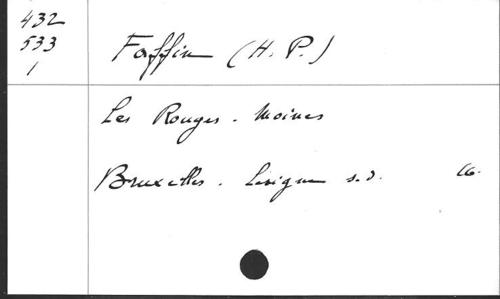 432
533
1
Faffin (H. P.)
Les Rouges-Moines
Bruxelles. s.d.